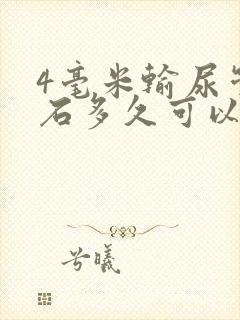 4毫米输尿
石多久可以
兮曦